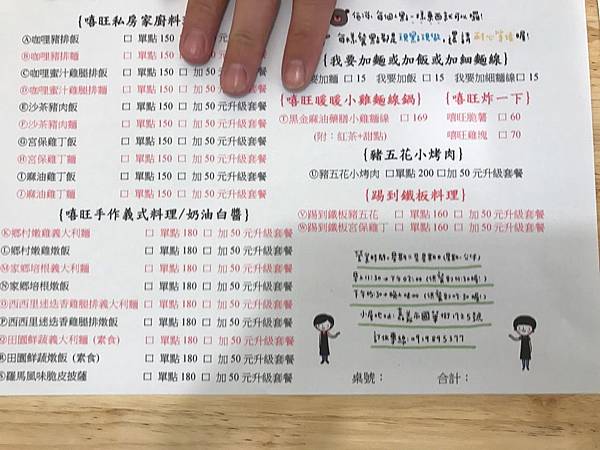 {嘻旺私房家廚料
Ⓐ咖哩豬排飯 □ 單點 150
Ⓑ咖哩豬排麵 □ 單點 150
Ⓒ咖哩蜜汁雞腿排飯 □ 單點 150 加 50 元升級套餐
Ⓓ咖哩蜜汁雞腿排麵 □ 單點 150 □ 加 50 元升級套餐
Ⓔ沙茶豬肉飯 □ 單點 150 □ 加 50 元升級套餐
Ⓕ沙茶豬肉麵 □ 單點 150 □ 加 50 元升級套餐
Ⓖ宮保雞丁飯 □ 單點 150 □ 加 50 元升級套餐
Ⓗ宮保雞丁麵 □ 單點 150 □ 加 50 元升級套餐
Ⓘ麻油雞丁飯 □ 單點 150 □ 加 50 元升級套餐
Ⓙ麻油雞丁麵 □ 單點 150 □ 加 50 元升級套餐
{嘻旺手作義式料理/奶油白醬}
Ⓚ鄉村嫩雞義大利麵 □ 單點 180 □ 加 50 元升級套餐
Ⓛ鄉村嫩雞燉飯 □ 單點 180 □ 加 50 元升級套餐
Ⓜ家鄉培根義大利麵 □ 單點 180 □ 加 50 元升級套餐
Ⓝ家鄉培根燉飯 □ 單點 180 □ 加 50 元升級套餐
Ⓞ西西里迷迭香雞腿排義大利麵 □ 單點 180 □ 加 50 元升級套餐
Ⓟ西西里迷迭香雞腿排燉飯 □ 單點 180 □ 加 50 元升級套餐
Ⓠ田園鮮蔬義大利麵 (素食) □ 單點 180 □ 加 50 元升級套餐
Ⓡ田園鮮蔬燉飯 (素食) □ 單點 180 □ 加 50 元升級套餐
Ⓢ羅馬風味脆皮披薩 □ 單點 180 □ 加 50 元升級套餐
{我要加麵或加飯或加細麵線}
要加麵 □ 15 我要加飯 □ 15 我要加細麵線 □ 15
{嘻旺暖暖小雞麵線鍋}
Ⓣ黑金麻油藥膳小雞麵線 □ 169
(附：紅茶+甜點)
{嘻旺炸一下}
嘻旺脆薯 □ 60
嘻旺雞塊 □ 70
{豬五花小烤肉}
Ⓤ豬五花小烤肉 □ 單點 200 □加 50 元升級套餐
{踢到鐵板料理}
Ⓥ踢到鐵板豬五花 □ 單點 160 □ 加 50 元升級套餐
Ⓦ踢到鐵板宮保雞丁 □ 單點 160 □ 加 50 元升級套餐
桌號： 合計：